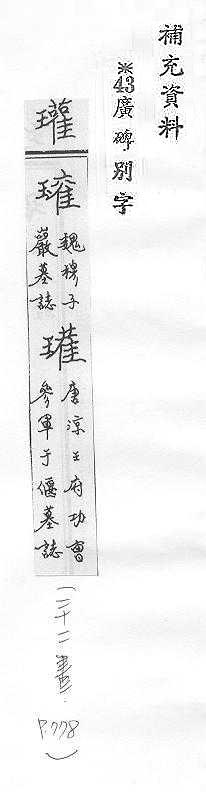 補充資料
※43廣碑別字
瓘
魏穆子
巖墓誌
唐涼王府功曹
參軍于偃墓誌
(二十二畫. P.778)